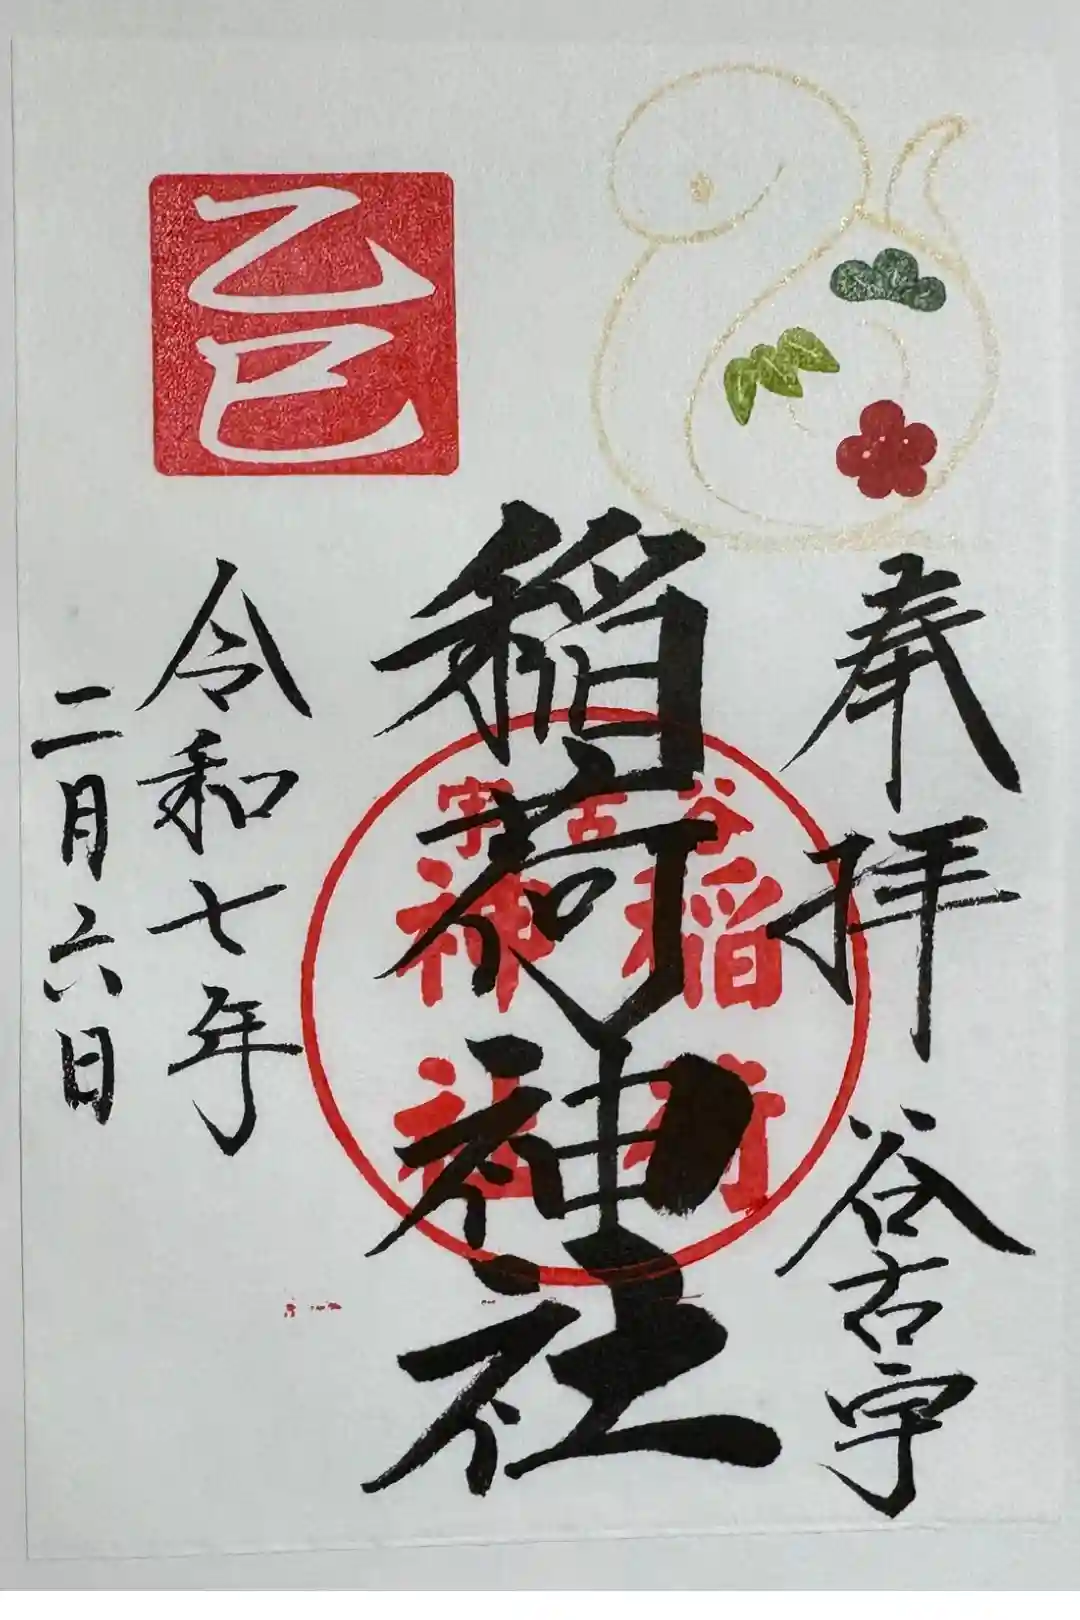 奉拝
谷古宇
稲荷神社
谷古宇
稲荷
神社
乙巳
令和七年
二月六日